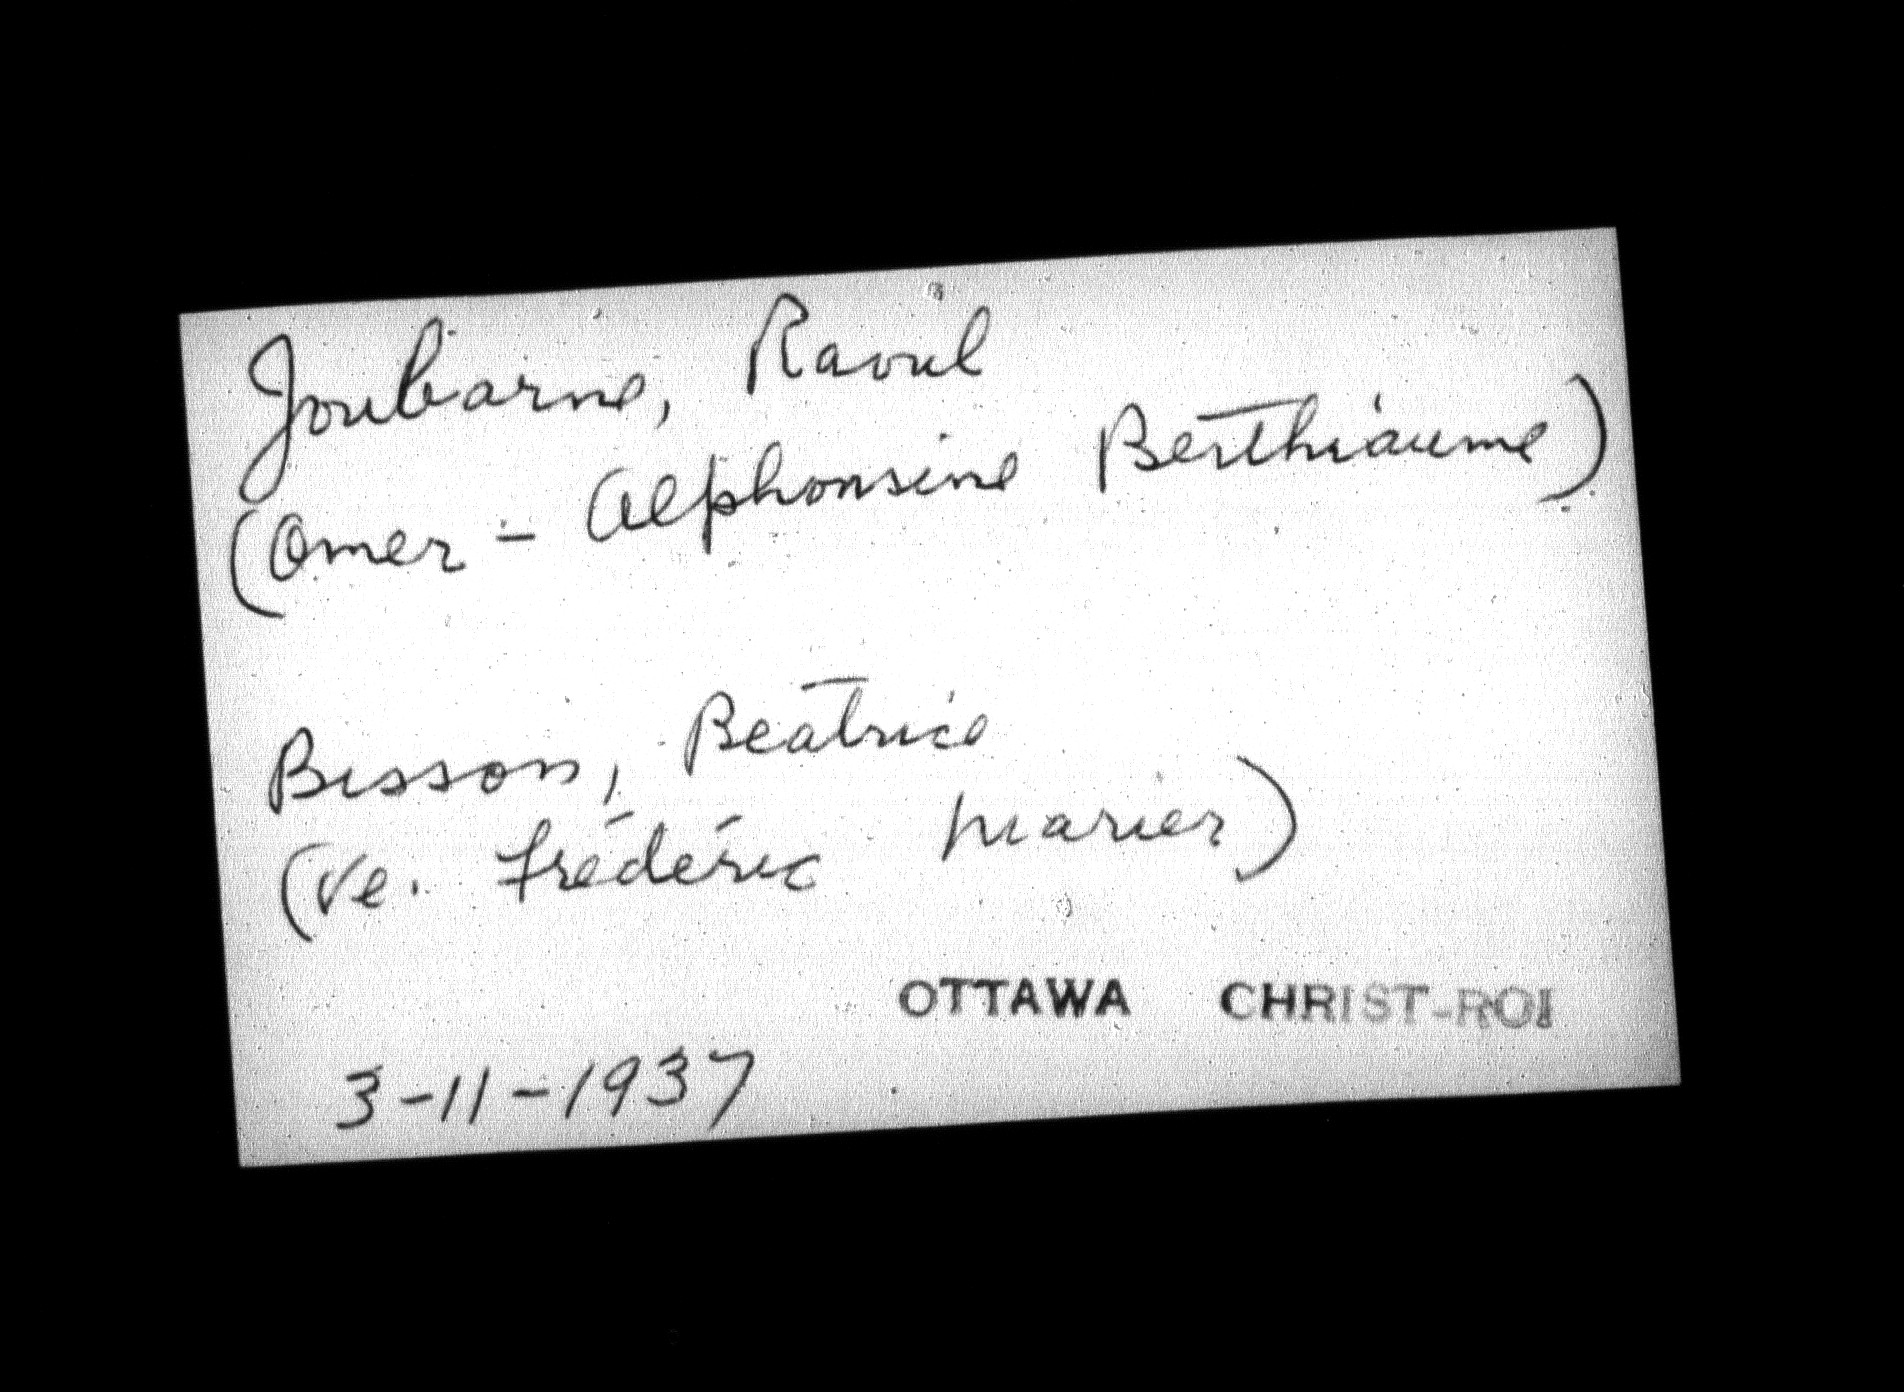 Joubarne, Raoul
(Omer - Alphonsine Berthiaume)
Bisson, Beatrice
(Ve. Frédéric Marier)
OTTAWA CHRIST-ROI
3-11-1937